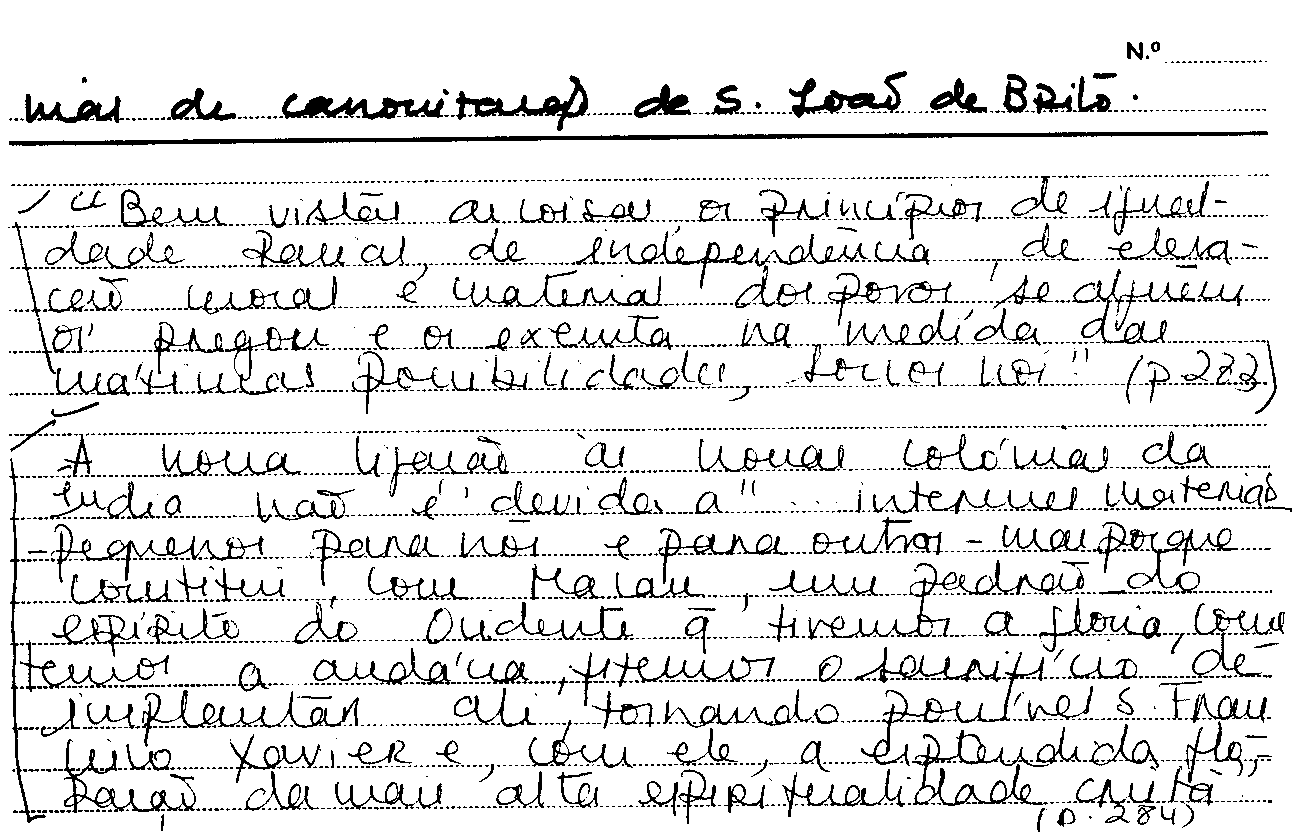 N.º
mas de canonização de S. João de Brito.
"Bem vistas as coisas os princípios de igual-
dade racial, de independência, de eleva-
ção moral e material dos povos se alguém
os pregou e os executa na medida das
máximas possibilidades, somos nós" (p 283)
A nossa ligação às nossas colónias da
India não é devida a "... interesses materiais
- Pequenos para nós e para outros - mas porque
constitui, com Macau, um padrão do
espírito do Ocidente q̃ tivemos a gloria, como
temos a audácia, fizemos o sacrifício de
implantar ali, tornando possível S. Fran
cisco Xavier e, com ele, a esplendida flo-
ração da mais alta espiritualidade cristã
(p. 284)